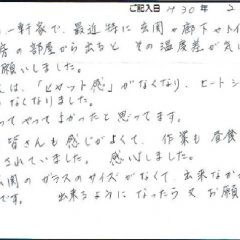 ご記入日 H30年 2
一軒家で、最近特に玄関や廊下やトイ
房の部屋から出ると その温度差が気に
願いしました。
は、「ヒヤット感」がなくなり、ヒートショ
なくなりました。
ってやってよかったと思ってます。
皆さんも感じがよくて、作業も 昼食
されていました。 感心しました。
関の ガラスのサイズがなくて、出来なか
です。 出来るようになったら又お願